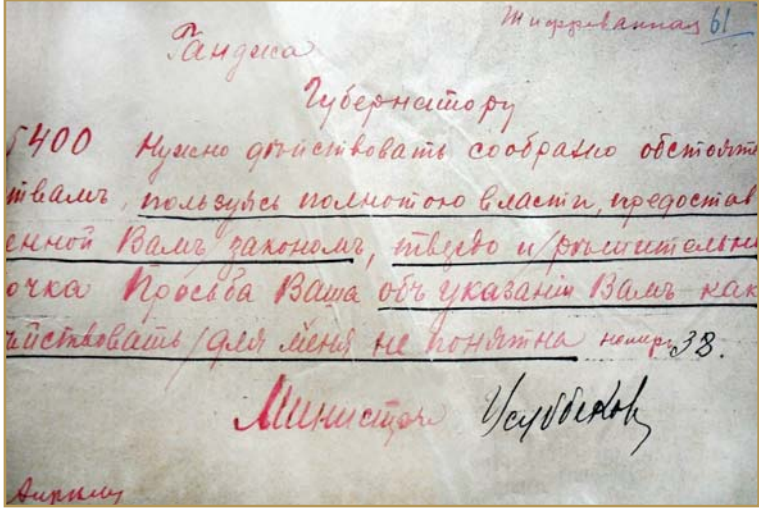 Шифрованная 61
Ганджа
Губернатору
5400 Нужно дѣйствовать сообразно обстояте
твамъ, пользуясь полнотою власти, предостав
енной Вамъ закономъ, твердо и рѣшительно
очка Просьба Ваша объ указанiи Вамъ как
ѣйствовать для меня не понятна номеръ 38.
Министръ Усуббеков